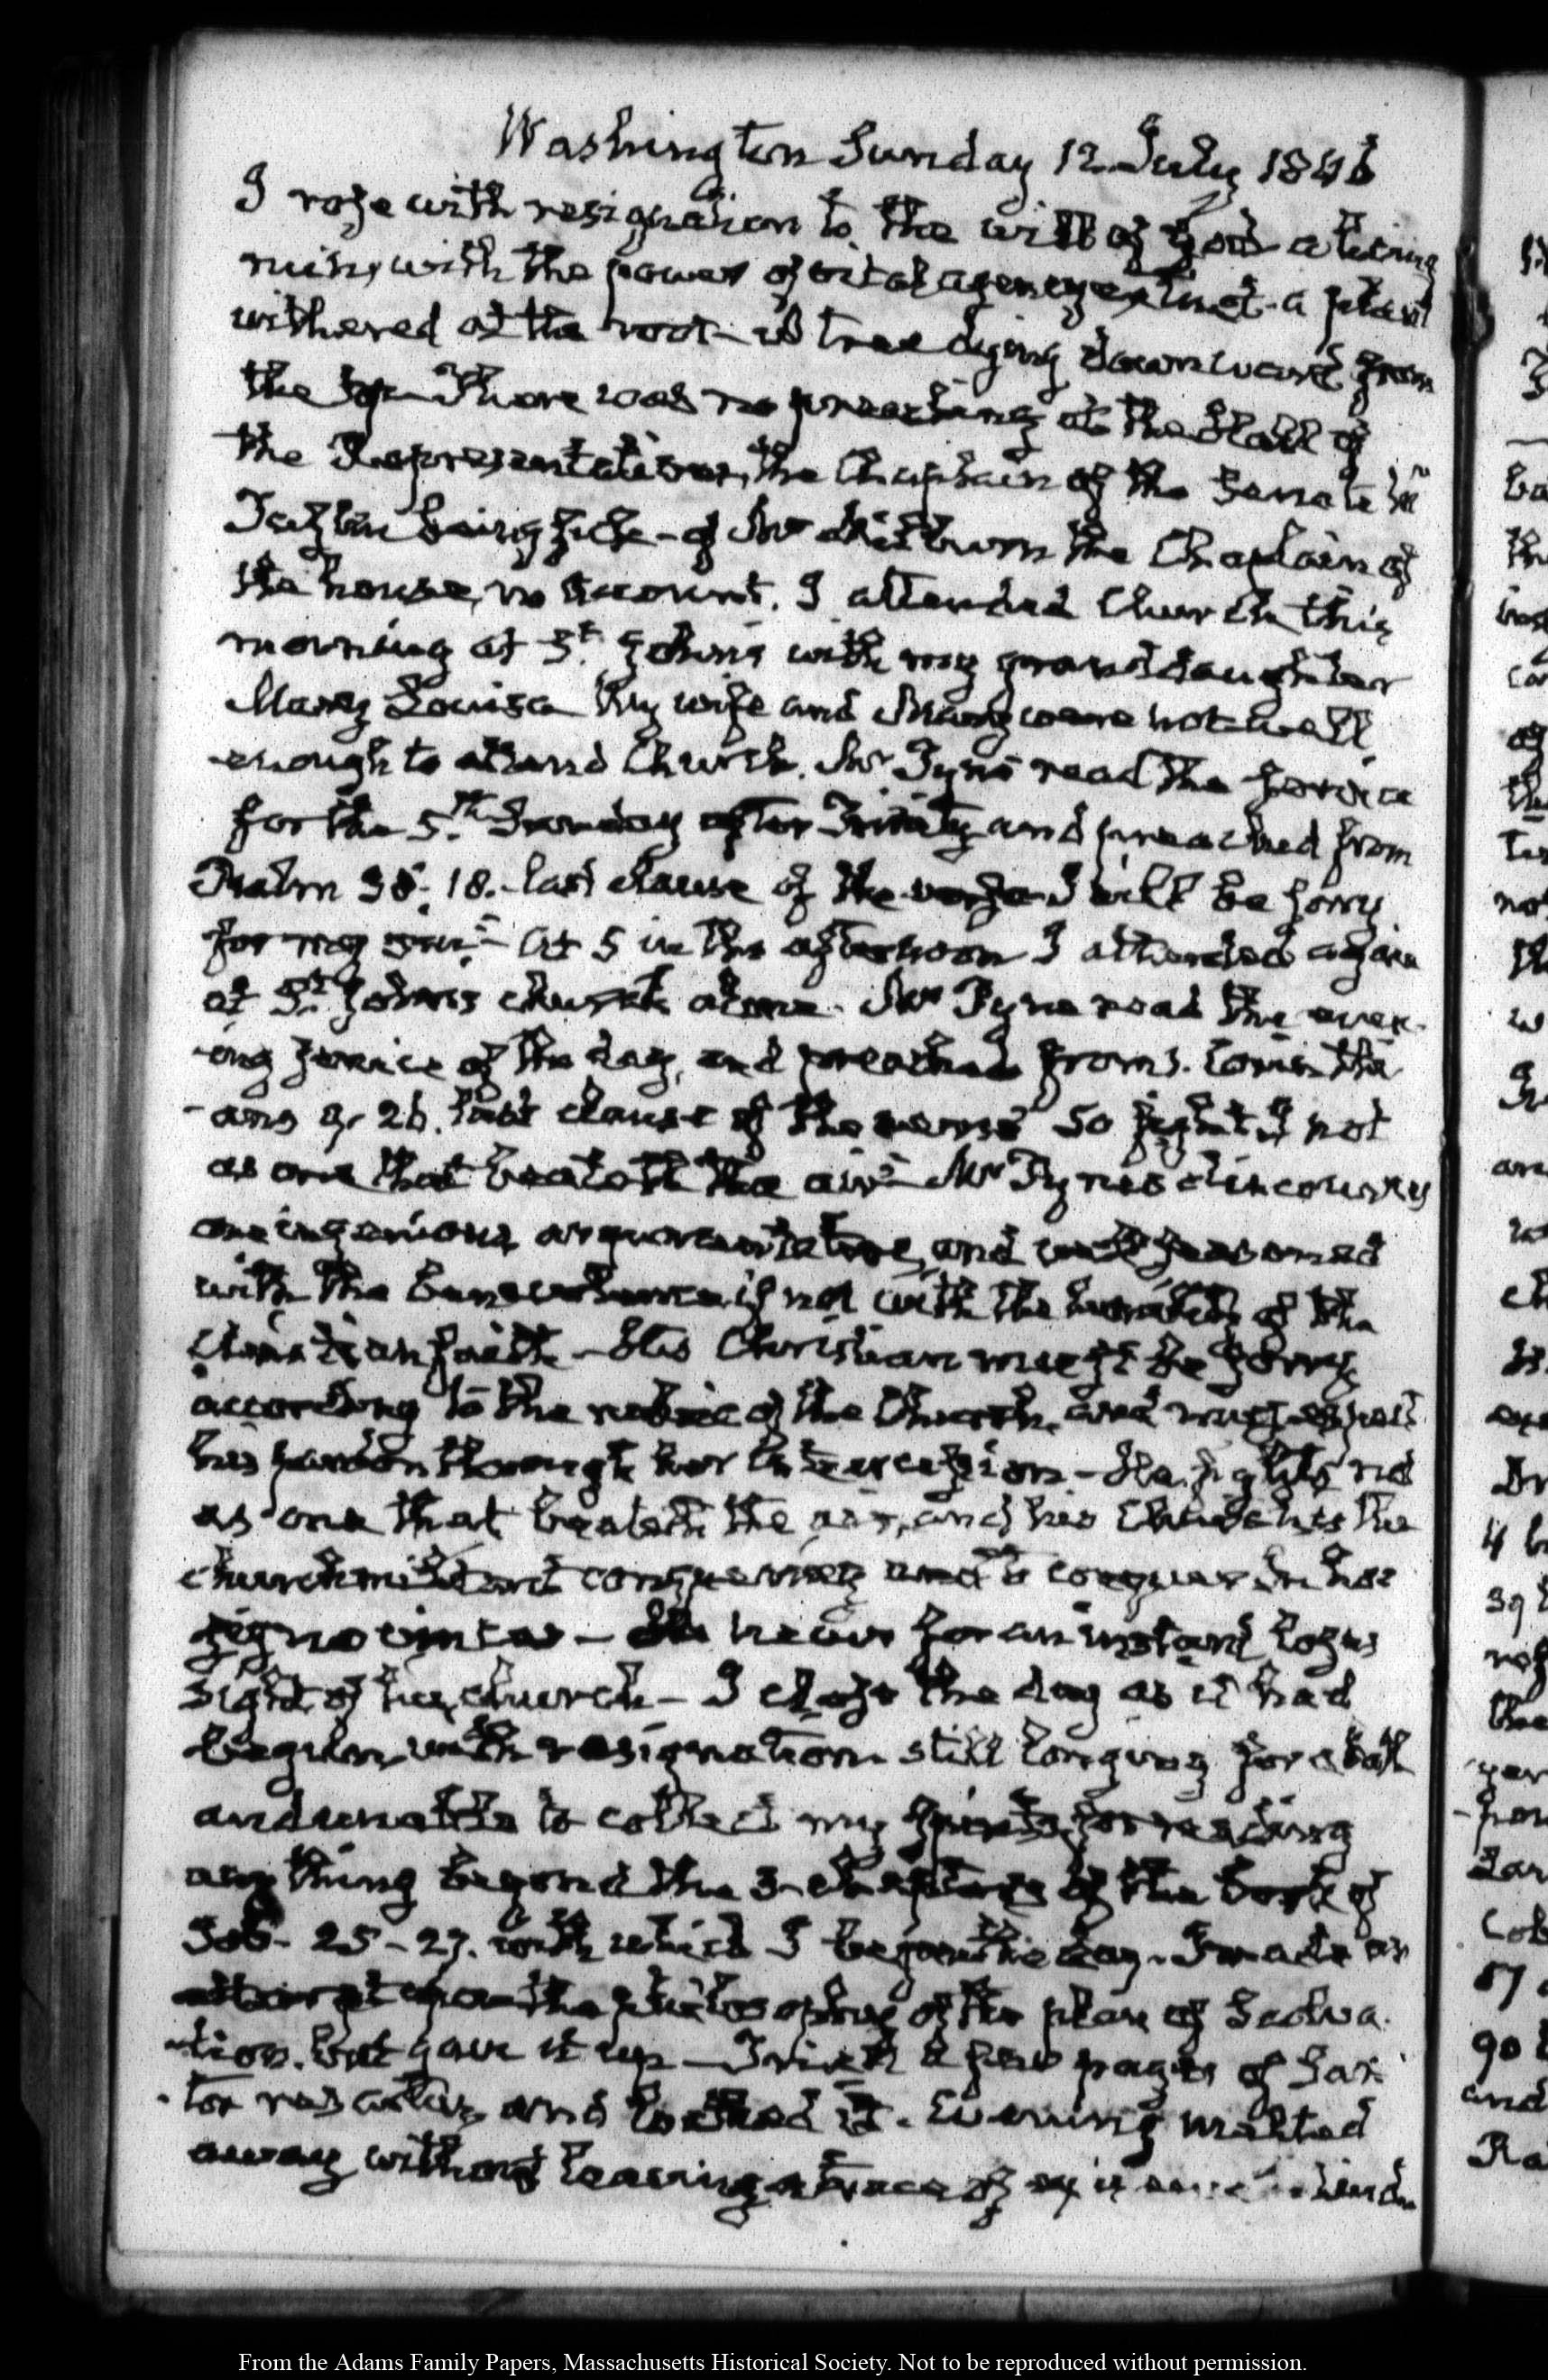 Washington Sunday 12 July 1846
I rose with resignation to the will of God a living
ruin, with the power of vital agency extinct - a plant
withered at the root - a tree dying downward from
the top - There was no preaching at the Hall of
the Representatives, the Chaplain of the Senate Mr
Tuston being sick - of Mr Milburn the Chaplain of
the house, no account. I attended Church this
morning at St. John's with my granddaughter
Mary Louisa My wife and Mary were not well
enough to attend Church. Mr Pyne read the service
for the 5.th Sunday after Trinity and preached from
Psalm 38. 18. last clause of the verse I will be sorry
for my sin - At 5 in the afternoon I attended again
at St. John's church alone. Mr Pyne read the even-
ing service of the day, and preached from 1. Corinthi
-ans 9. 26. last clause of the verse So fight I not
as one that beateth the air - Mr Pyne's discourses
are ingenious argumentative, and well seasoned
with the benevolence if not with the humility of the
christian faith - His Christian must be sorry
according to the rubric of the Church, and must expect
his pardon through her intercession - He fights not
as one that beateth the air, and his Church is the
church militant conquering and to conquer In hoc
signo vinces - He never for an instant loses
sight of his church - I close the day as it had
begun with resignation still longing for a bath
and unable to collect my spirits for reading
any thing beyond the 3 chapters of the book of
Job - 25-27. with which I began the day. I made an
attempt upon the philosophy of the plan of Salva-
tion. but gave it up - I tried a few pages of Sar-
tor resartus and loathed it. Evening melted
away without leaving a trace of